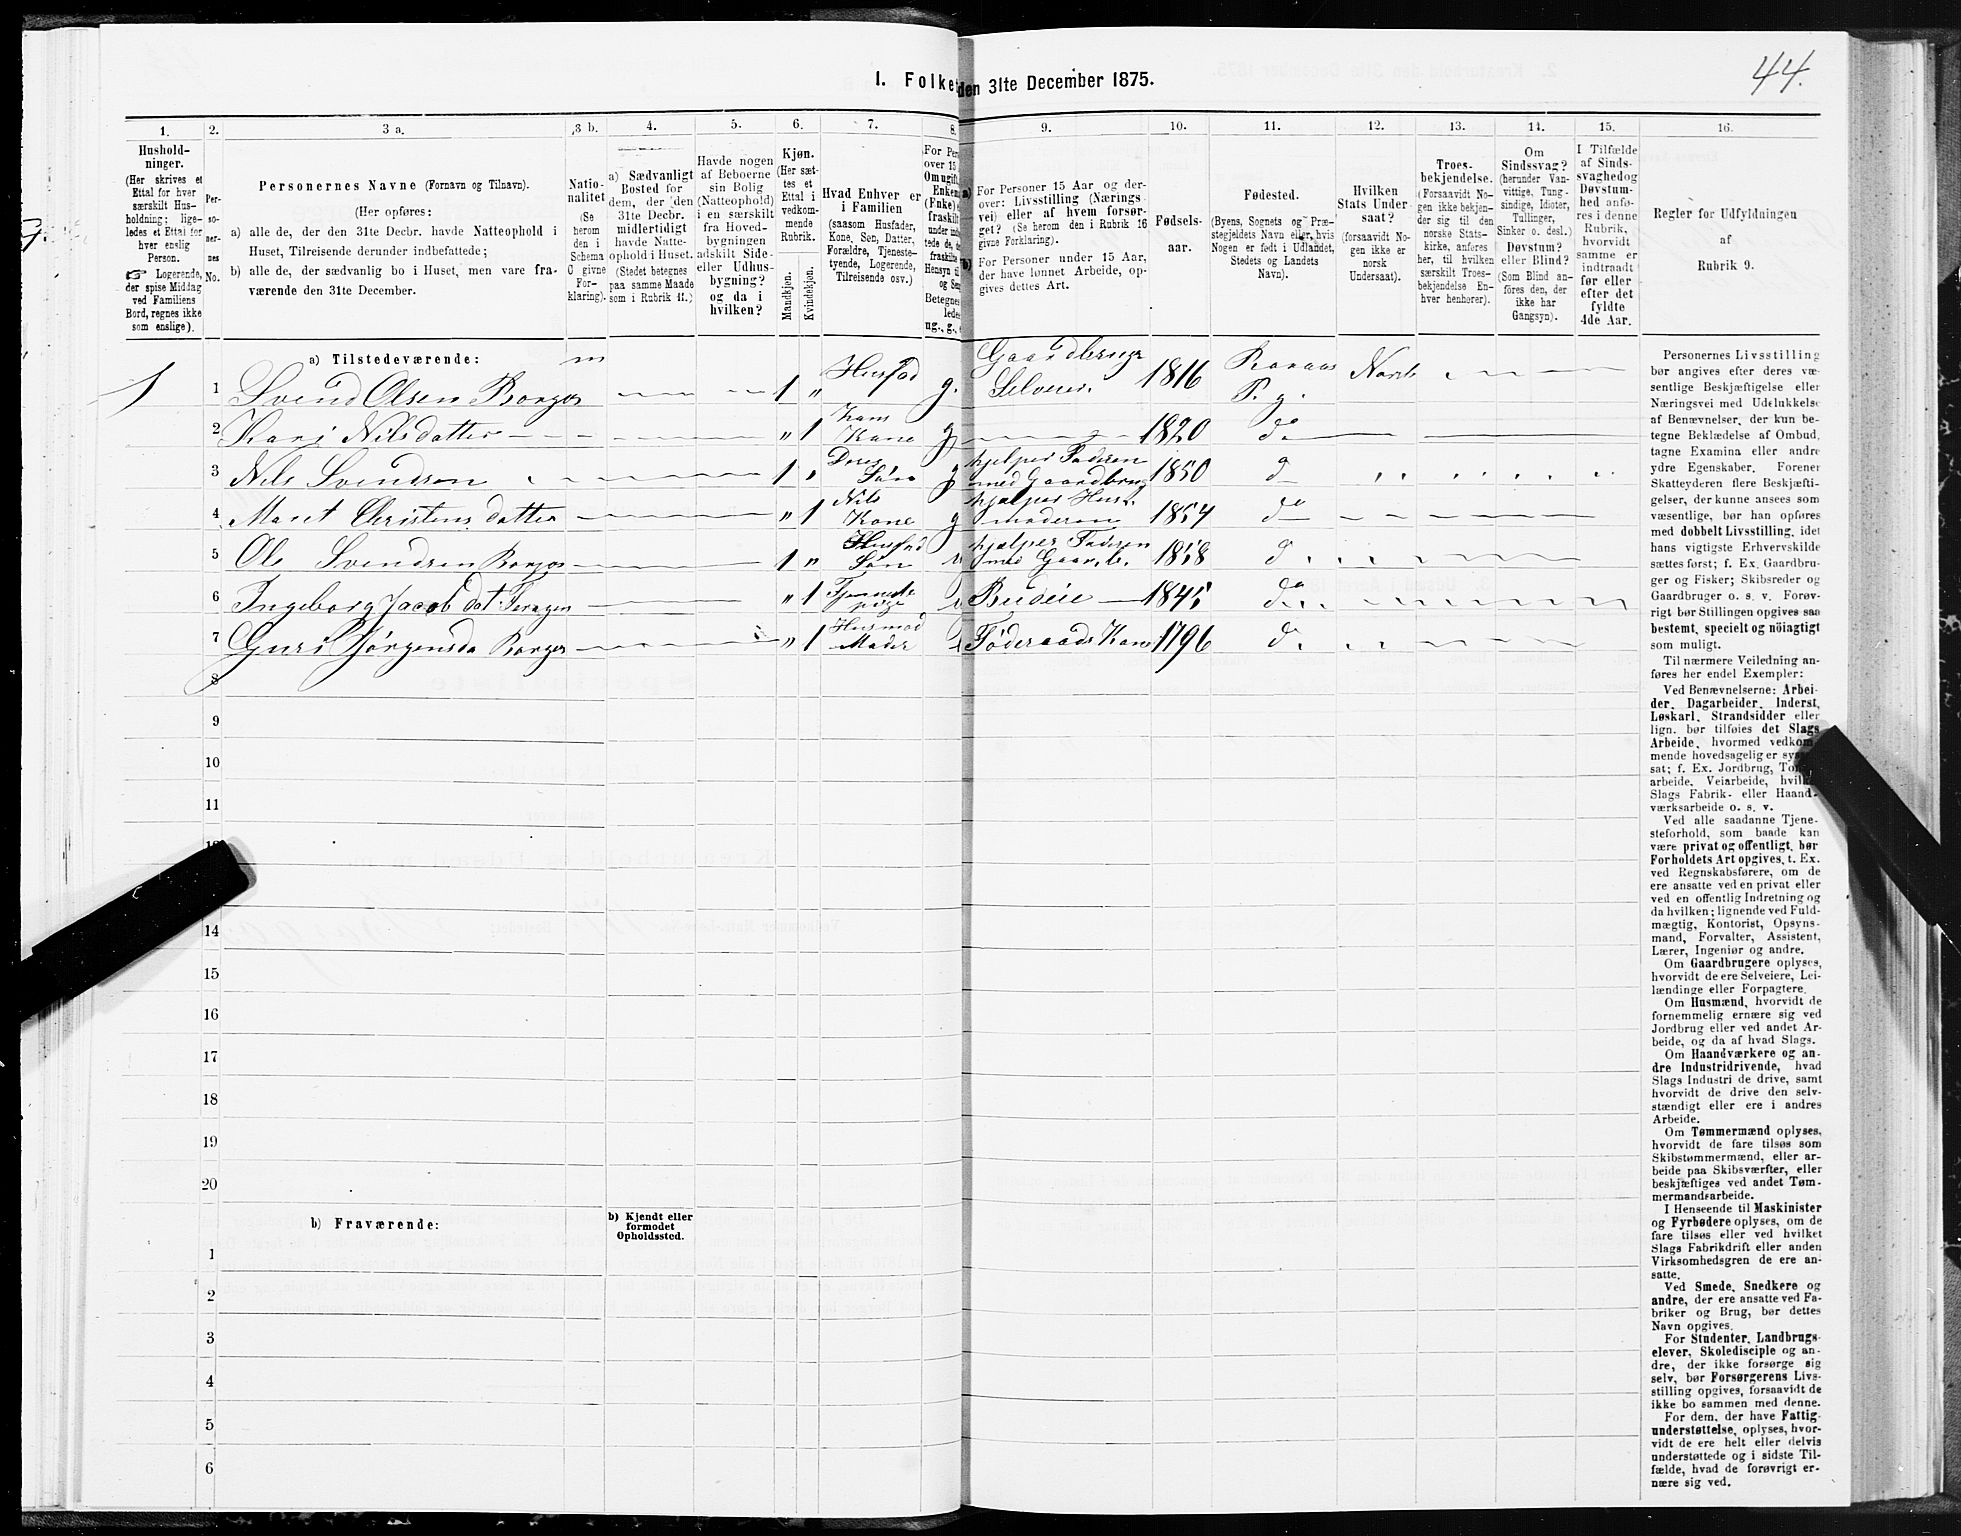 44.
I. Folke
den 31te December 1875.
1.
2.
3 a.
3 b.
4.
5.
6.
7.
8.
9.
10.
11.
12.
13.
14.
15.
16.
Hushold-
ninger.
(Her skrives et
Ettal for hver
særskilt Hus-
holdning; lige-
ledes et Ettal for
hver enslig
Person.
☞ Logerende,
der spise Middag
ved Familiens
Bord, regnes ikke
som enslige).
Per-
so-
ner-
nes
No.
Personernes Navne (Fornavn og Tilnavn).
(Her opføres:
a) alle de, der den 31te Decbr. havde Natteophold i
Huset, Tilreisende derunder indbefattede;
b) alle de, der sædvanlig bo i Huset, men vare fra-
værende den 31te December.
Natio-
nalitet
(Se
herom
den i
Schema
C givne
For-
klaring).
a) Sædvanligt
Bosted for
dem, der den
31te Decbr.
midlertidigt
havde Natte-
ophold i Huset.
(Stedet betegnes
paa samme Maade
som i Rubrik 11.)
Havde nogen
af Beboerne
sin Bolig
(Natteophold)
i en særskilt
fra Hoved-
bygningen
adskilt Side-
eller Udhus-
bygning?
og da i
hvilken?
Kjøn.
(Her sæt-
tes et
Ettal i
vedkom-
mende
Rubrik.
Mandkjøn.
Kvindekjøn.
Hvad Enhver er
i Familien
(saasom Husfader,
Kone, Søn, Datter,
Forældre, Tjeneste-
tyende, Logerende,
Tilreisende osv.)
For Per
over 15
Omugift
Enkem
(Enke) e
fraskilt
under ind
tede de, d
fraskilte
Hensyn til
og Sen
Betegnes
lede
ug., g., e
a) For Personer 15 Aar og der-
over: Livsstilling (Nærings-
vei) eller af hvem forsør-
get? (Se herom den i Rubrik 16
givne Forklaring).
b) For Personer under 15 Aar,
der have lønnet Arbeide, op-
gives dettes Art.
Fødsels-
aar.
Fødested.
(Byens, Sognets og Præ-
stegjeldets Navn eller, hvis
Nogen er født i Udlandet,
Stedets og Landets
Navn).
Hvilken
Stats Under-
saat?
(forsaavidt No-
gen ikke er
norsk
Undersaat).
Troes-
bekjendelse.
(Forsaavidt No-
gen ikke bekjen-
der sig til den
norske Stats-
kirke, anføres
her, til hvilken
særskilt Troes-
bekjendelse En-
hver henhører).
Om
Sindssvag?
(herunder Van-
vittige, Tung-
sindige, Idioter,
Tullinger,
Sinker o. desl.)
Døvstum?
eller Blind?
(Som Blind an-
føres den, der
ikke har
Gangsyn).
I Tilfælde
af Sinds-
svaghedog
Døvstum-
hed anfø-
res i denne
Rubrik,
hvorvidt
samme er
indtraadt
før eller
efter det
fyldte
4de Aar.
Regler for Udfyldningen
af
Rubrik 9.
a) Tilstedeværende:
1 1 Svend Olsen Borgos 1 „ Husfad g. Gaardbruger Selveier. 1816 P. g. Norsk
2 Kari Nilsdatter „ 1 Hans Kone g 1820 do
3 Nils Svendsen 1 „ Deres Søn g hjelper Faderen med Gaardbrug 1850 d
4 Maret Christensdatter „ 1 Nils Kone g hjælper Hus moderen 1854 do
5 Ole Svendsen Borgos 1 „ Husfad Søn hjælper Faderen med Gaardb. 1858 d
6 Ingeborg Jacobdat „ 1 Tjeneste pige Budeie 1845 do
7 Guri Jørgensda Borgos „ 1 Husmod Moder Føderaads Kone 1796 d
8
9
10
11
14
15
16
17
18
19
20
b) Fraværende:
b) Kjendt eller
formodet
Opholdssted.
1
2
3
4
5
6
Personernes Livsstilling
bør angives efter deres væ-
sentlige Beskjæftigelse eller
Næringsvei med Udelukkelse
af Benævnelser, der kun be-
tegne Beklædelse af Ombud,
tagne Examina eller andre
ydre Egenskaber. Forener
Skatteyderen flere Beskjæfti-
gelser, der kunne ansees som
væsentlige, bør han opføres
med dobbelt Livsstilling, idet
hans vigtigste Erhvervskilde
sættes først; f. Ex. Gaardbru-
ger og Fisker; Skibsreder og
Gaardbruger o. s. v. Forøv-
rigt bør Stillingen opgives saa
bestemt, specielt og nöiagtigt
som muligt.
Til nærmere Veiledning an-
føres her endel Exempler:
Ved Benævnelserne: Arbei-
der, Dagarbeider, Inderst,
Løskarl, Strandsidder eller
lign. bør tilføies det Slags
Arbeide, hvormed vedkom-
mende hovedsagelig er syssel-
sat; f. Ex. Jordbrug,
arbeide, Veiarbeide, hvilket
Slags Fabrik- eller Haand-
værksarbeide o. s. v.
Ved alle saadanne Tjene-
steforhold, som baade kan
være privat og offentligt, bør
Forholdets Art opgives, t. Ex.
ved Regnskabsførere, om de
ere ansatte ved en privat eller
ved en offentlig Indretning og
da hvilken; lignende ved Fuld-
mægtig, Kontorist, Opsyns-
mand, Forvalter, Assistent,
Lærer, Ingeniør og andre.
Om Gaardbrugere oplyses,
hvorvidt de ere Selveiere, Lei-
lændinge eller Forpagtere.
Om Husmænd, hvorvidt de
fornemmelig ernære sig ved
Jordbrug eller ved andet Ar-
beide, og da af hvad Slags.
Om Haandværkere og an-
dre Industridrivende, hvad
Slags Industri de drive, samt
hvorvidt de drive den selv-
stændigt eller ere i andres
Arbeide.
Om Tømmermænd oplyses,
hvorvidt de fare tilsøs som
Skibstømmermænd, eller ar-
beide paa Skibsværfter, eller
beskjæftiges ved andet Tøm-
mermandsarbeide.
I Henseende til Maskinister
og Fyrbødere oplyses, om de
fare tilsøs eller ved hvilket
Slags Fabrikdrift eller anden
Virksomhedsgren de ere an-
satte.
Ved Smede, Snedkere og
andre, der ere ansatte ved Fa-
briker og Brug, bør dettes
Navn opgives.
For Studenter, Landbrugs-
elever, Skoledisciple og an-
dre, der ikke forsørge sig
selv, bør Forsørgerens Livs-
stilling opgives, forsaavidt de
ikke bo sammen med denne.
For dem, der have Fattig-
understøttelse, oplyses, hvor-
vidt de ere helt eller delvis
understøttede og i sidste Til-
fælde, hvad de forøvrigt er-
nære sig ved.